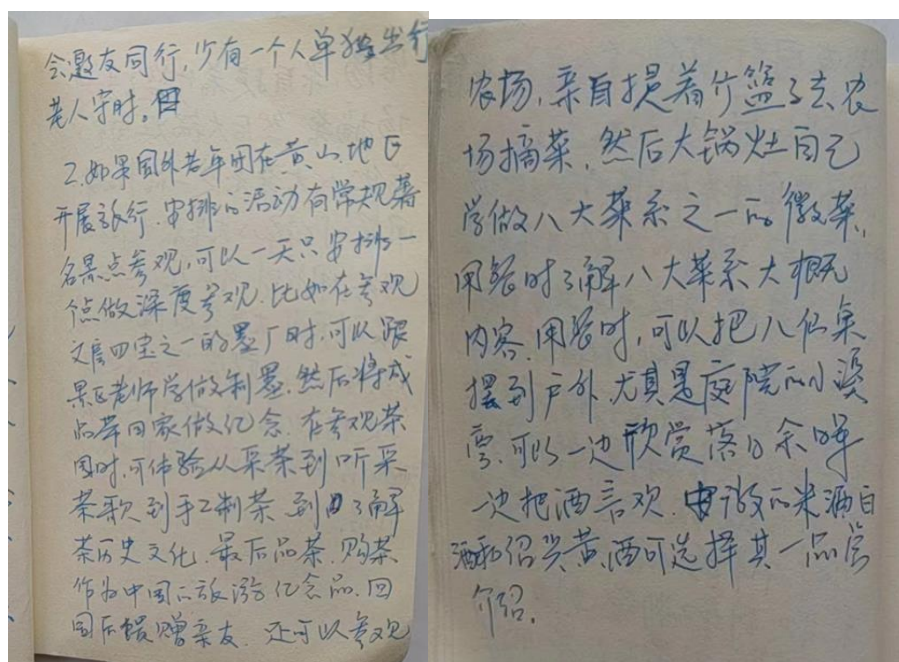 会邀友同行，少有一个人单独出行
老人守时。
2.如果国外老年团在黄山地区
开展旅行.安排的活动有常规著
名景点参观，可以一天只安排一
个点做深度参观.比如在参观
文房四宝之一的墨厂时，可以跟
景区老师学做制墨.然后将成
品带回家做纪念.在参观茶
园时，可体验从采茶到听采
茶歌到手工制茶到了解
茶历史文化.最后品茶.购茶
作为中国之旅游纪念品.回
国后馈赠亲友.还可以参观
农场，亲自提着竹篮子去农
场摘菜，然后大锅灶自己
学做八大菜系之一的徽菜，
用餐时了解八大菜系大概
内容.用餐时，可以把八仙桌
摆到户外尤其是庭院的小
可以一边欣赏落日余晖
一边把酒言欢.的米酒白
酒和绍兴黄酒可选择其一品尝
介绍.